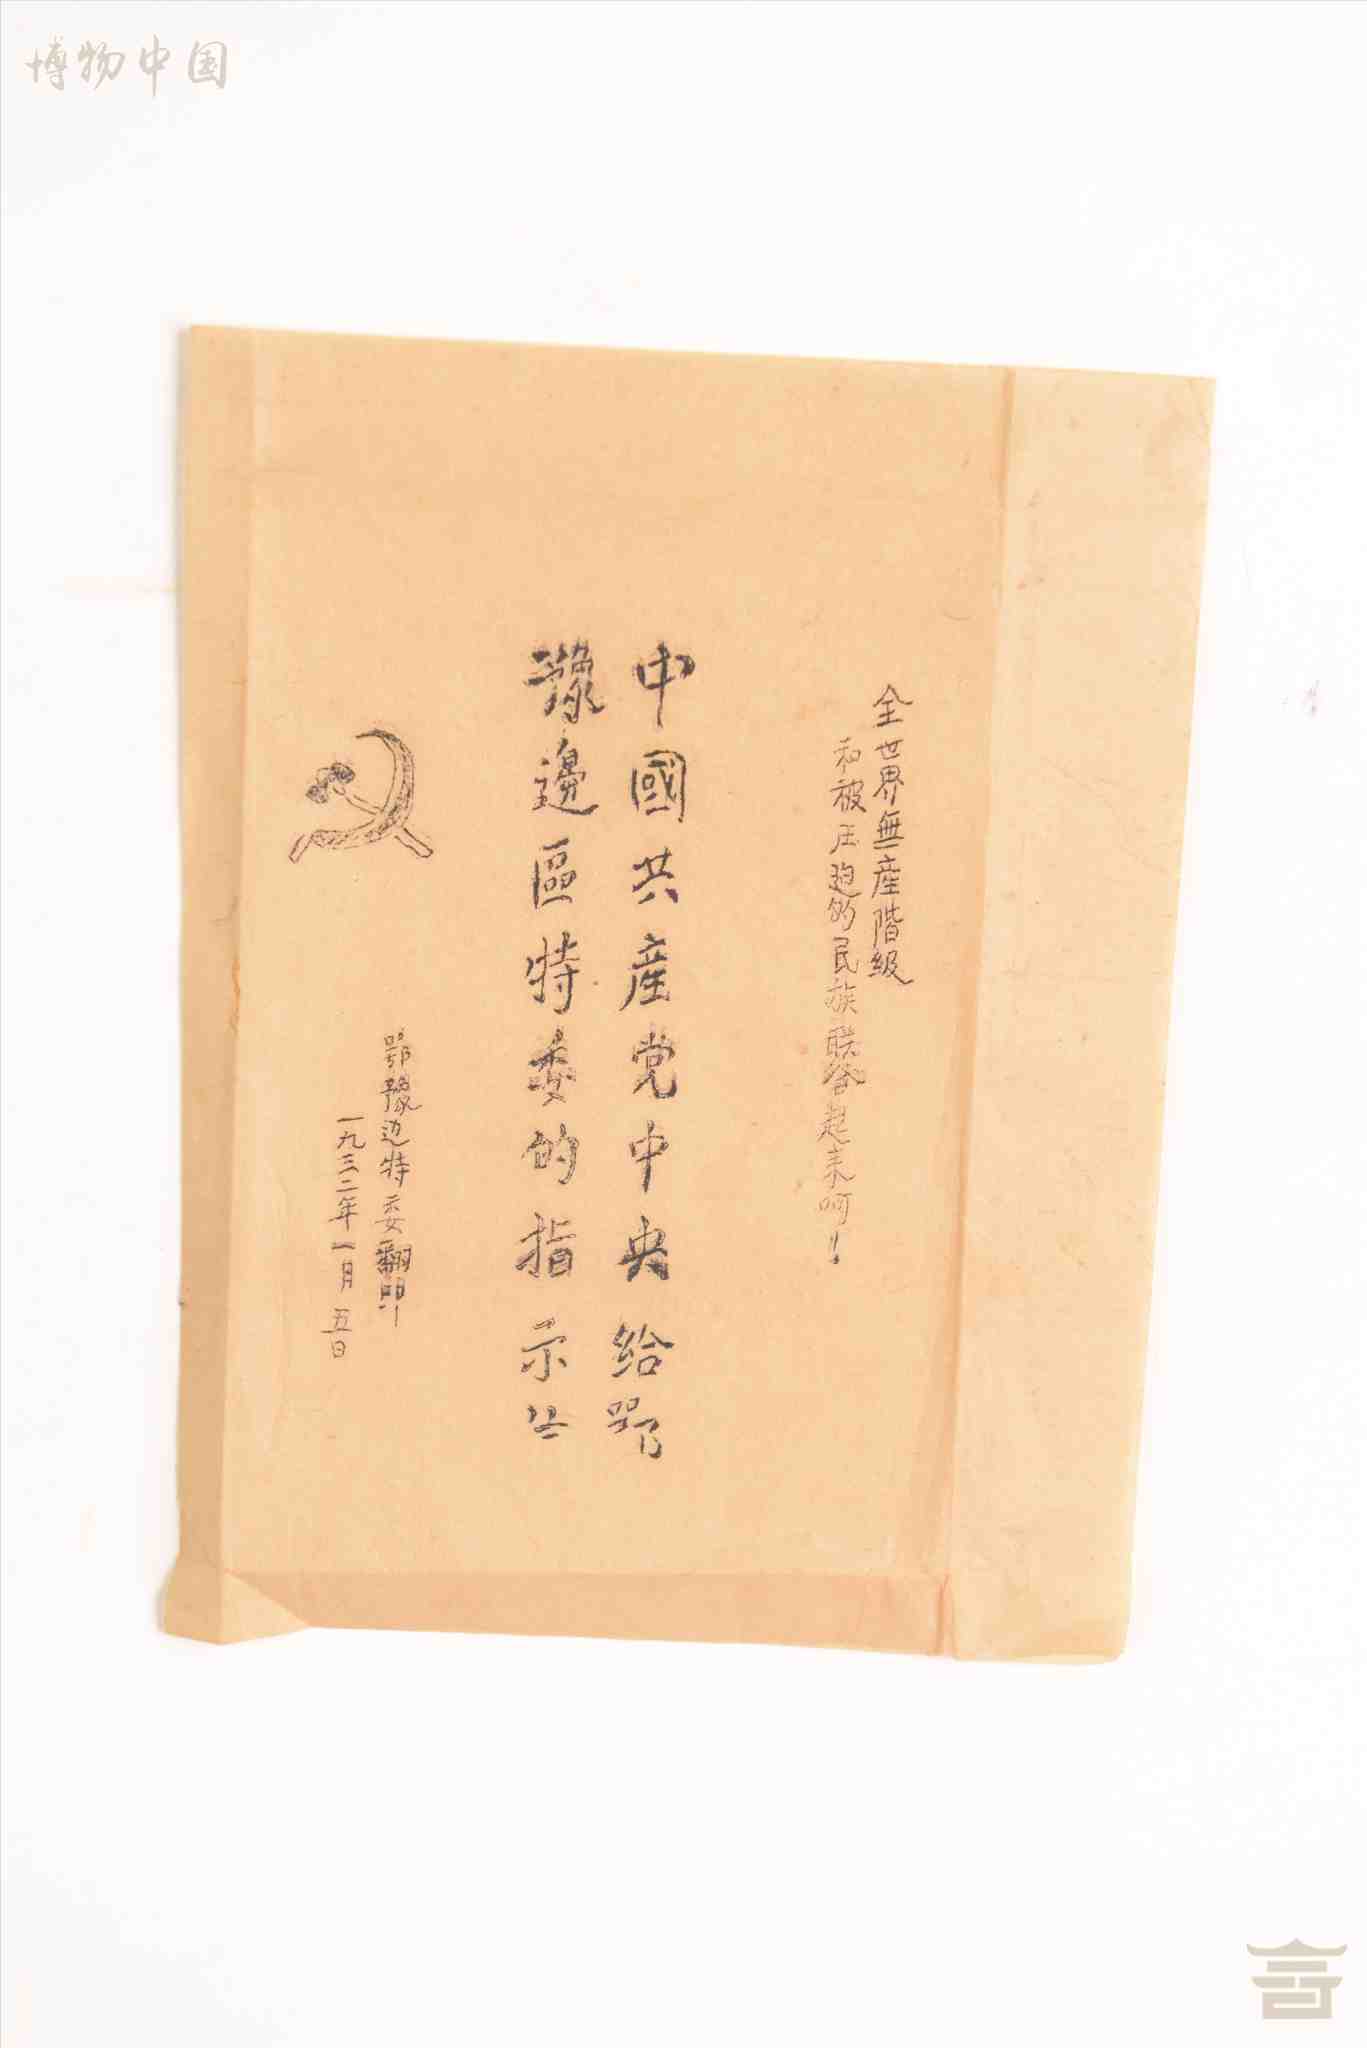 博物中国
全世界無產階級
和被压迫的民族联合起来呵！
中國共產党中央给鄂
豫邊區特委的指示
鄂豫边特委翻印
一九三二年一月五日